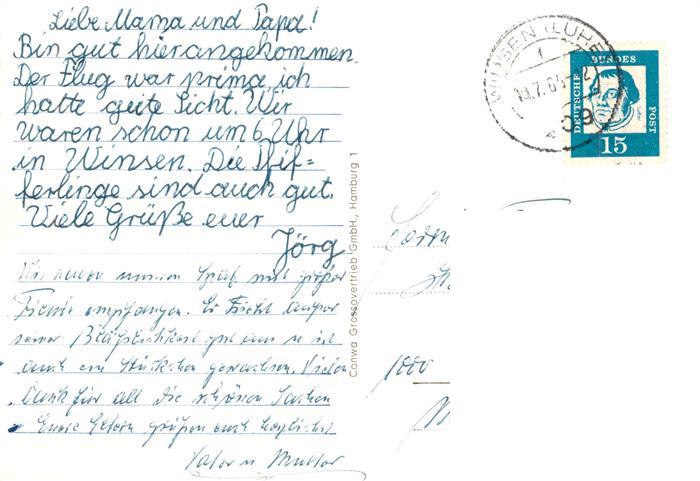 Liebe Mama und Papa!
Bin gut hier angekommen.
Der Flug war prima, ich
hatte gute Sicht. Wir
waren schon um 6 Uhr
in Winsen. Die Pfif=
ferlinge sind auch gut.
Viele Grüße euer
Jörg
Wir haben unseren Spatz mit großer
Freude empfangen. Er sieht außer
seiner Bläßlichkeit gut aus u. ist
auch ein Stückchen gewachsen. Vielen
Dank für all die schönen Sachen
Eure Eltern grüßen euch herzlichst
Vater u. Mutter
Conwa Grossovertrieb GmbH., Hamburg 1
WINSEN (LUHE)
DEUTSCHE
BUNDES
POST
15
1000